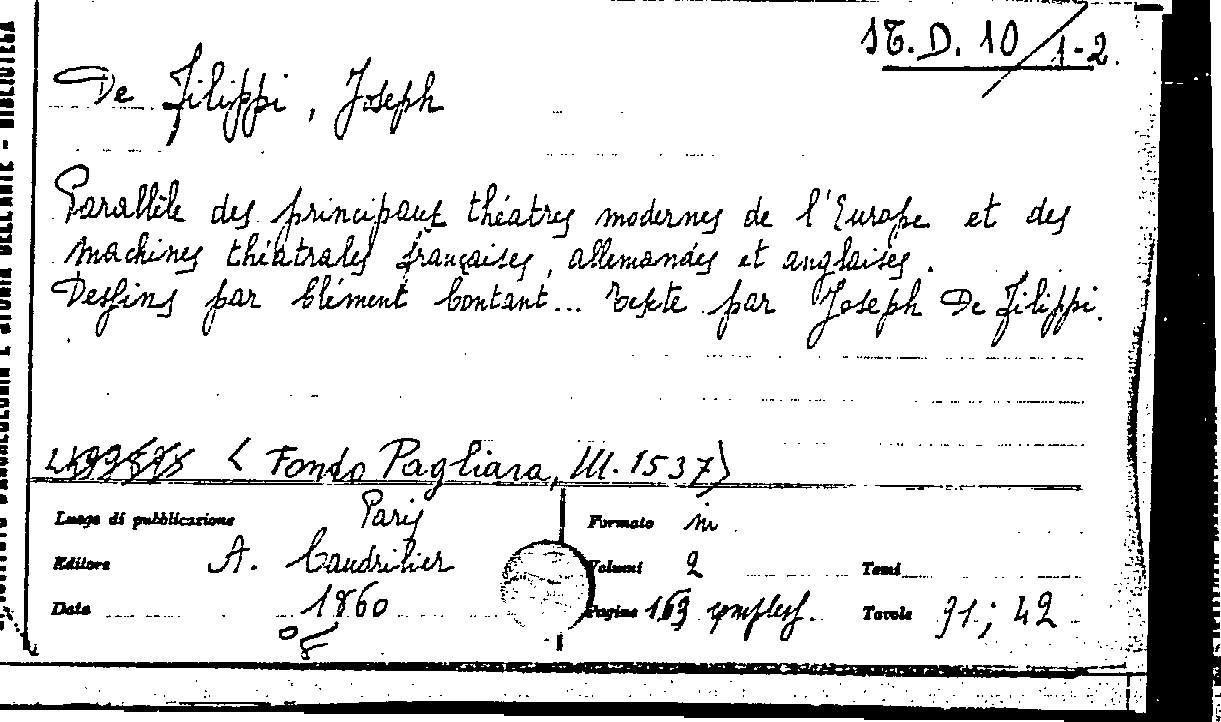 ST. D. 10/1-2.
De Filippi, Joseph
Parallèle des principaux théatres modernes de l'Europe et des
machines théatrales françaises, allemandes et anglaises.
Dessins par Clément Contant... Texte par Joseph De Filippi.
< Fondo Pagliara, III. 1537 >
Luogo di pubblicazione Paris Formato in
Editore A. Caudrilier Volumi 2 Tomi
Data 1860 Pagine 163 compless. Tavole 91; 42
D'ARCHEOLOGIA E STORIA DELL'ARTE - BIBLIOTECA